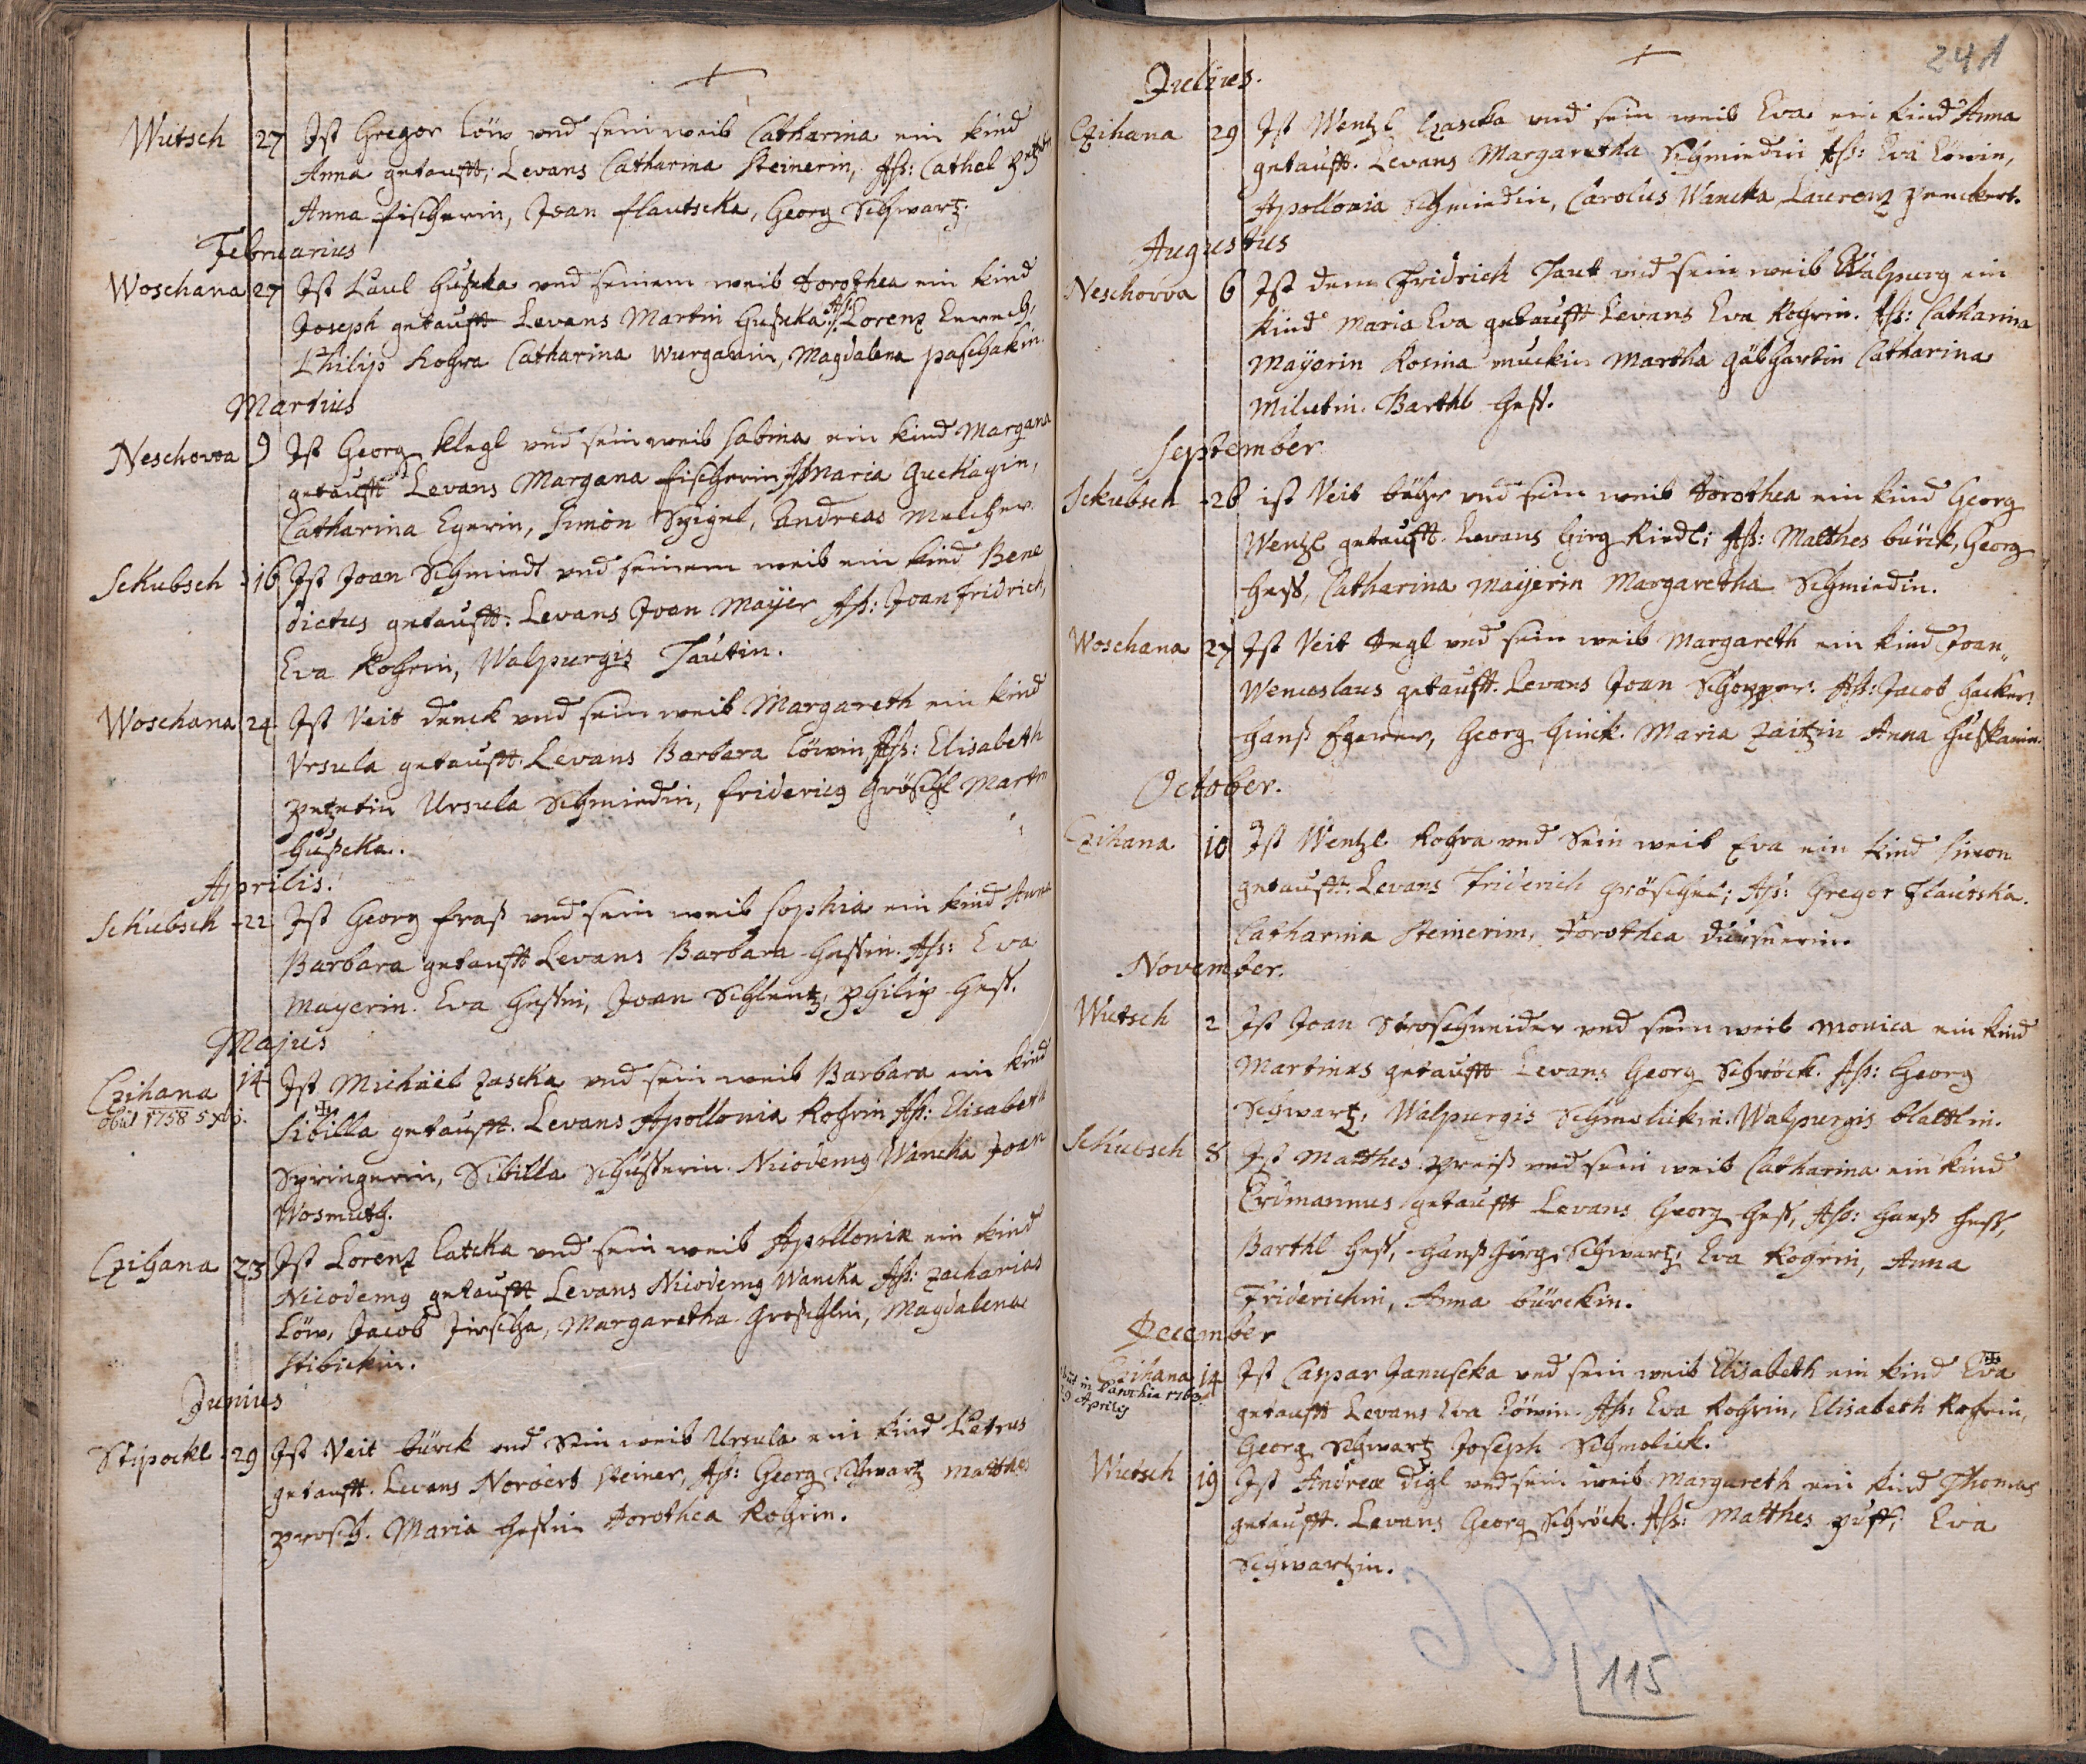 Wutsch 27 Ist Gregor Löw und sein weib Catharina ein kind
Anna getaufft, Levans Catharina Steinerin, Ass: Cathel
Anna fischerin, Joan flautscka, Georg Schwartz.
Februarius
Woschana 27 Ist Paul Huscka und seinem weib Dorothea ein kind
Joseph getaufft Levans Martin Huscka Ass: Lorenz
Philip Rohra Catharina Wurgamin, Magdalena paschakin.
Martius
Neschova 9 Ist Georg Klegl und sein weib Sabina ein kind Margana
getaufft Levans Margana fischerin Ass Maria Guckagin,
Catharina Egerin, Simon Spigel, Andreas Melcher.
Schubsch 16 Ist Joan Schmiedt und seinem weib ein kind Bene
dictus getaufft. Levans Joan Mayer Ass: Joan fridrich,
Eva Rohrin, Walpurgis Tautin.
Woschana 24. Ist Veit Denck und sein weib Margareth ein kind
Ursula getaufft. Levans Barbara Löwin, Ass: Elisabeth
Ursula Schmiedin, fridericg gröschl Martin
Huscka.
Aprilis.
Schubsch 22 Ist Georg fraß und sein weib Sophia ein kind Anna
Barbara getaufft Levans Barbara Hessin. Ass: Eva
Mayerin. Eva Hessin, Joan Schlentz, Philip Hess.
Majus
Czihana 14 Ist Michael Zascka und sein weib Barbara ein kind
obiit 1758 5 xbr.
Sibilla getaufft. Levans Apollonia Rohrin Ass: Elisabeth
Springerin, Sibilla Schusterin. Nicodemg Wancka Joan
Wosmuth.
Czihana 23 Ist Lorenz Latcka und sein weib Apollonia ein kind
Nicodemg getaufft Levans Nicodemg Wancka Ass: Zacharias
Löw, Jacob Jirscha, Margaretha Gröschlin, Magdalena
Stibickin.
Junius
Stipockl 29 Ist Veit bürck und Sein weib Ursula ein kind Petrus
getaufft. Levans Norbert Steiner, Ass: Georg Schwartz Matthes
prosch. Maria Hessin Dorothea Rohrin.
241
Julius.
Czihana 29 Ist Wenzl Czascka und sein weib Eva ein kind Anna
getaufft. Levans Margaretha Schmiedin Ass: Eva Löwin,
Apollonia Schmiedin, Carolus Wancka, Laurenz penckert.
Augustus
Neschova 6 Ist dem Fridrich Taut und sein weib Walpurg ein
kind Maria Eva getaufft Levans Eva Rohrin. Ass: Catharina
Mayerin Rosina muckin Martha gäbhartin Catharina
Milutin. Barthl Hess.
September
Schubsch 26 ist Veit und sein weib Dorothea ein kind Georg
Wenzl getaufft. Levans Girg Riedl; Ass: Matthes bürck, Georg
Hess, Catharina Maijerin Margaretha Schmiedin.
Woschana 27 Ist Veit Degl und sein weib Margareth ein kind Joan
Wenceslaus getaufft. Levans Joan Schopper. Ass: Jacob Hacker,
Hanß Egerer, Georg Hinck. Maria Zaitzin Anna Huskanin.
October.
Czihana 10 Ist Wenzl Rohra und Sein weib Eva ein kind Simon
getaufft. Levans Friderich gröschel; Ass: Gregor Flautska.
Catharina Steinerin, Dorothea
November.
Wutsch 2 Ist Joan Stroschneider und sein weib Monica ein kind
Martinus getaufft Levans Georg Schröck. Ass: Georg
Schwartz, Walpurgis Schmolickin. Walpurgis blattlin.
Schubsch 8 Ist Matthes preiß und sein weib Catharina ein kind
Erdmannus getaufft Levans Georg Hess, Ass: Hanß Hess,
Barthl Hess, Hanß Girg Schwartz, Eva Rohrin, Anna
Friderichin, Anna bürckin.
December
Czihana 14 Ist Caspar Januscka und sein weib Elisabeth ein kind Eva
obiit in Parochia 1763 9 Aprilis
getaufft Levans Eva Löwin. Ass: Eva Rohrin, Elisabeth Rohrin,
Georg Schwartz Joseph Schmolick.
Wutsch 19 Ist Andrea Digl und sein weib Margareth ein kind Thomas
getaufft. Levans Georg Schröck. Ass: Matthes Eva
Schwartzin.
1706
115